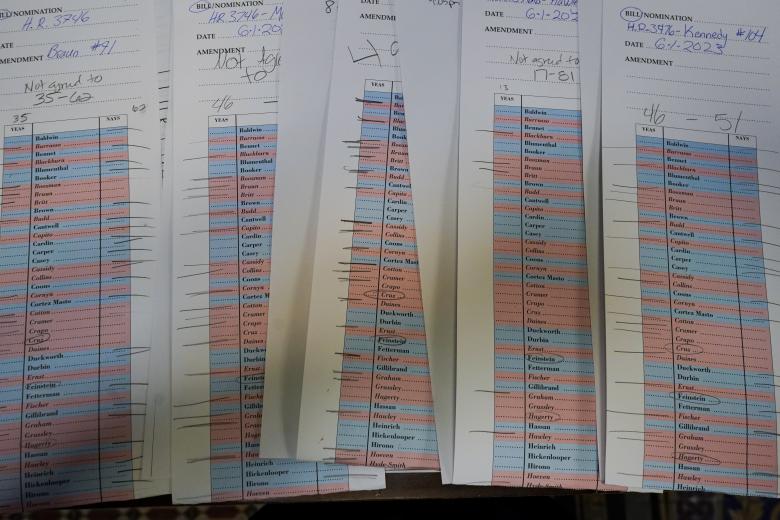 BILL/NOMINATION
H.R. 3746
DATE
AMENDMENT Braun #91
Not agreed to
35-62
35 62
YEAS NAYS
Baldwin
Barrasso
Bennet
Blackburn
Blumenthal
Booker
Boozman
Braun
Britt
Brown
Budd
Cantwell
Capito
Cardin
Carper
Casey
Cassidy
Collins
Coons
Cornyn
Cortez Masto
Cotton
Cramer
Crapo
Cruz
Daines
Duckworth
Durbin
Ernst
Feinstein
Fetterman
Fischer
Gillibrand
Graham
Grassley
Hagerty
Hassan
Hawley
Heinrich
Hickenlooper
Hirono
Hoeven
BILL/NOMINATION
HR 3746-
DATE 6-1-20
AMENDMENT
Not
to
46
YEAS
Baldwin
Barrasso
Bennet
Blackburn
Blumenthal
Booker
Boozman
Braun
Britt
Brown
Budd
Cantwell
Capito
Cardin
Carper
Casey
Cassidy
Collins
Coons
Cornyn
Cortez M
Cotton
Cramer
Crapo
Cruz
Daines
Duckw
Durbin
Ernst
Feinste
Fetter
Heinrich
Hickenlooper
Hirono
Hoeven
8
DATE
AMENDM
YEAS
Cantwel
Capito
Cardin
Carper
Casey
Cassidy
Collins
Coons
Cornyn
Cortez Mast
Cotton
Cramer
Crapo
Cruz
Daines
Duckworth
Durbin
Ernst
Feinstein
Fetterman
Fischer
Gillibrand
Graham
Grassley
Hagerty
Hassan
Hawley
Heinrich
Hickenlooper
Hirono
Hoeven
Hyde-Smith
DATE 6-1-202
AMENDMENT
Not agreed to
17-81
YEAS
Baldwin
Barrasso
Bennet
Blackburn
Blumenthal
Booker
Boozman
Braun
Britt
Brown
Budd
Cantwell
Capito
Cardin
Carper
Casey
Cassidy
Collins
Coons
Cornyn
Cortez Masto
Cotton
Cramer
Crapo
Cruz
Daines
Duckworth
Durbin
Ernst
Feinstein
Fetterman
Fischer
Gillibrand
Graham
Grassley
Hagerty
Hassan
Hawley
Heinrich
Hickenlooper
Hirono
Hoeven
Hyde-Smith
BILL/NOMINATION
H.R. 3476- Kennedy #104
DATE 6-1-2023
AMENDMENT
46 - 51
YEAS NAYS
Baldwin
Barrasso
Bennet
Blackburn
Blumenthal
Booker
Boozman
Braun
Britt
Brown
Budd
Cantwell
Capito
Cardin
Carper
Casey
Cassidy
Collins
Coons
Cornyn
Cortez Masto
Cotton
Cramer
Crapo
Cruz
Daines
Duckworth
Durbin
Ernst
Feinstein
Fetterman
Fischer
Gillibrand
Graham
Grassley
Hagerty
Hassan
Hawley
Heinrich